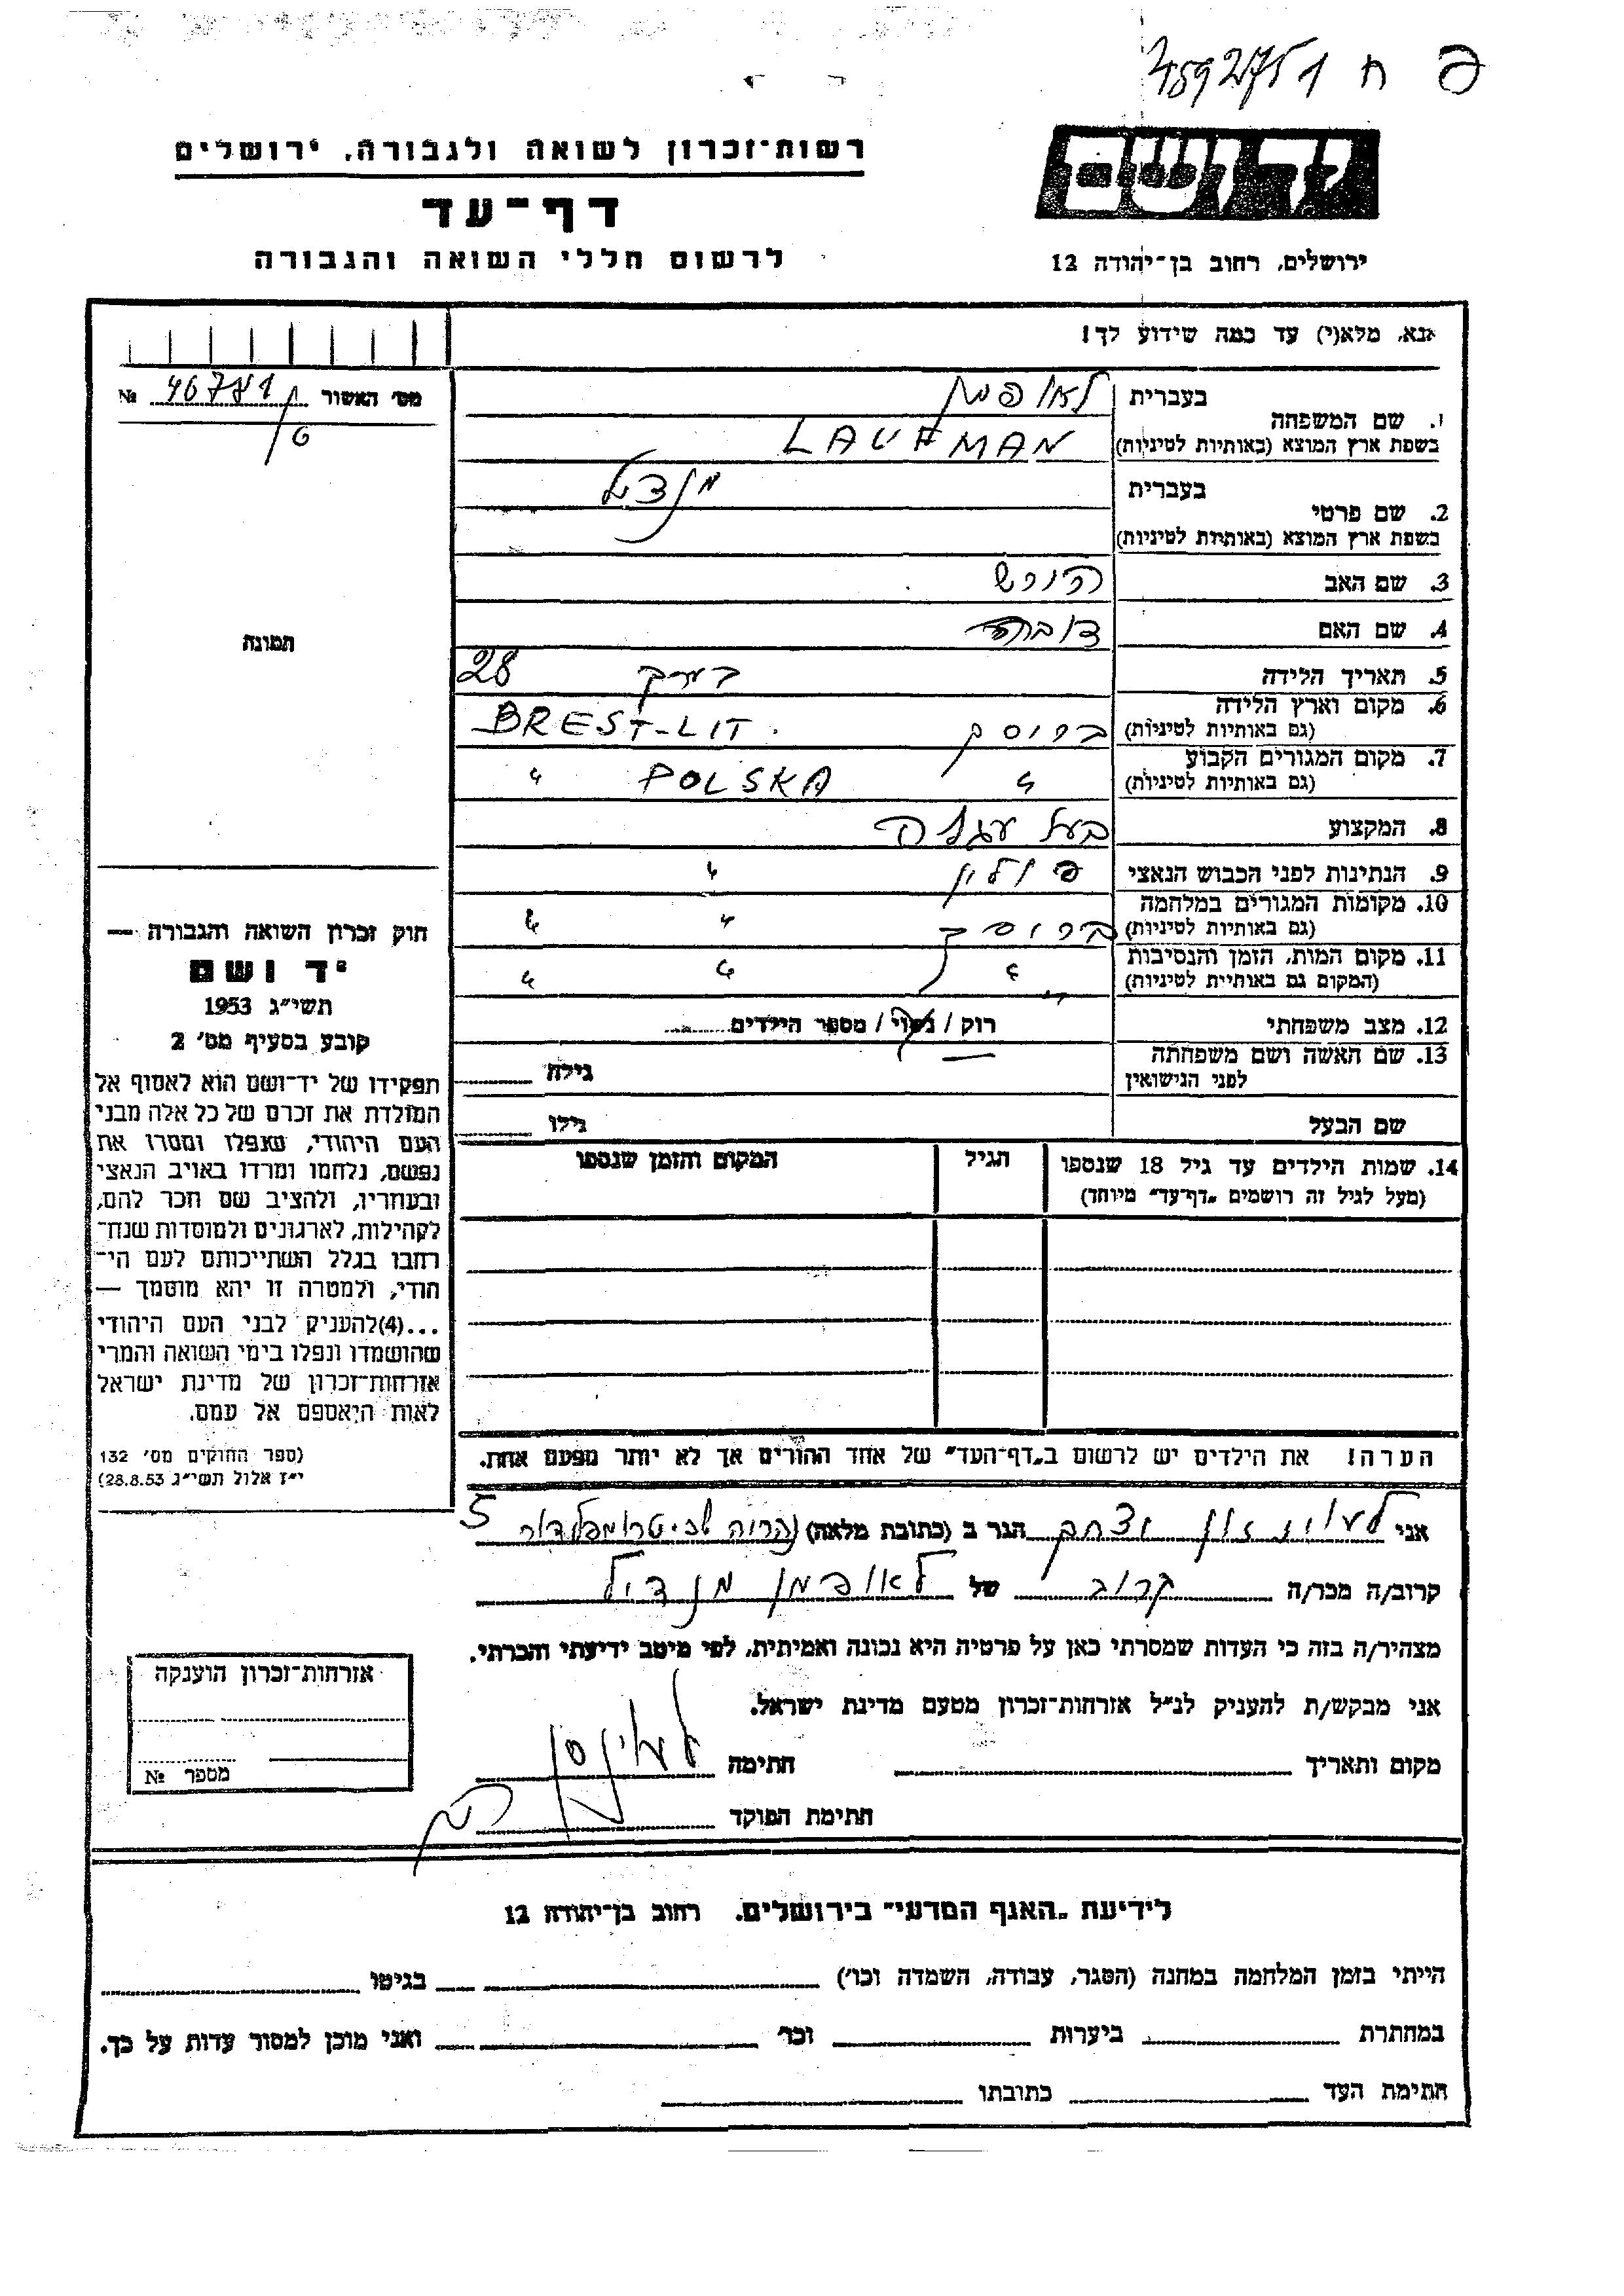 ח 4592751
רשות־זכרון לשואה ולגבורה, ירושלים
ידושם
דף־עד
לרשום חללי השואה והגבורה
ירושלים, רחוב בן־יהודה 12
אנא, מלא(י) עד כמה שידוע לך!
מס׳ האשור 46781 №
1. שם המשפחה
בעברית לאופמן
בשפת ארץ המוצא (באותיות לטיניות) LAUFMAN
2. שם פרטי
בעברית מנדיל
בשפת ארץ המוצא (באותיות לטיניות)
3. שם האב הירש
4. שם האם
5. תאריך הלידה בערך 28
6. מקום וארץ הלידה
(גם באותיות לטיניות) בריסק BREST-LIT.
7. מקום המגורים הקבוע
(גם באותיות לטיניות) " POLSKA "
8. המקצוע בעל עגלה
9. הנתינות לפני הכבוש הנאצי פולין "
10. מקומות המגורים במלחמה
(גם באותיות לטיניות) בריסק " "
11. מקום המות, הזמן והנסיבות
(המקום גם באותיות לטיניות) " " "
12. מצב משפחתי רוק / נשוי / מספר הילדים
13. שם האשה ושם משפחתה
לפני הנישואין גילה
שם הבעל גילו
14. שמות הילדים עד גיל 18 שנספו
(מעל לגיל זה רושמים „דף־עד" מיוחד)
הגיל
המקום והזמן שנספו
הערה! את הילדים יש לרשום ב„דף־העד" של אחד ההורים אך לא יותר מפעם אחת.
תמונה
חוק זכרון השואה והגבורה —
יד ושם
תשי״ג 1953
קובע בסעיף מס׳ 2
תפקידו של יד־ושם הוא לאסוף אל
המולדת את זכרם של כל אלה מבני
העם היהודי, שנפלו ומסרו את
נפשם, נלחמו ומרדו באויב הנאצי
ובעוזריו, ולהציב שם וזכר להם,
לקהילות, לארגונים ולמוסדות שנח־
רחבו בגלל השתייכותם לעם הי־
הודי, ולמטרה זו יהא מוסמך —
...(4)להעניק לבני העם היהודי
שהושמדו ונפלו בימי השואה והמרי
אזרחות־זכרון של מדינת ישראל
לאות היאספם אל עמם.
(ספר החוקים מס׳ 132
י״ז אלול תשי״ג 28.8.53)
אני לעוינזון יצחק הגר ב (כתובת מלאה) 5
קרוב/ה מכר/ה קרוב של לאופמן מנדיל
מצהיר/ה בזה כי העדות שמסרתי כאן על פרטיה היא נכונה ואמיתית, לפי מיטב ידיעתי והכרתי.
אני מבקש/ת להעניק לנ״ל אזרחות־זכרון מטעם מדינת ישראל.
מקום ותאריך חתימה
חתימת הפוקד
אזרחות־זכרון הוענקה
מספר №
לידיעת „האגף המדעי" בירושלים, רחוב בן־יהודה 12
הייתי בזמן המלחמה במחנה (הסגר, עבודה, השמדה וכו׳) בגיטו
במחתרת ביערות וכו׳ ואני מוכן למסור עדות על כך.
חתימת העד כתובתו